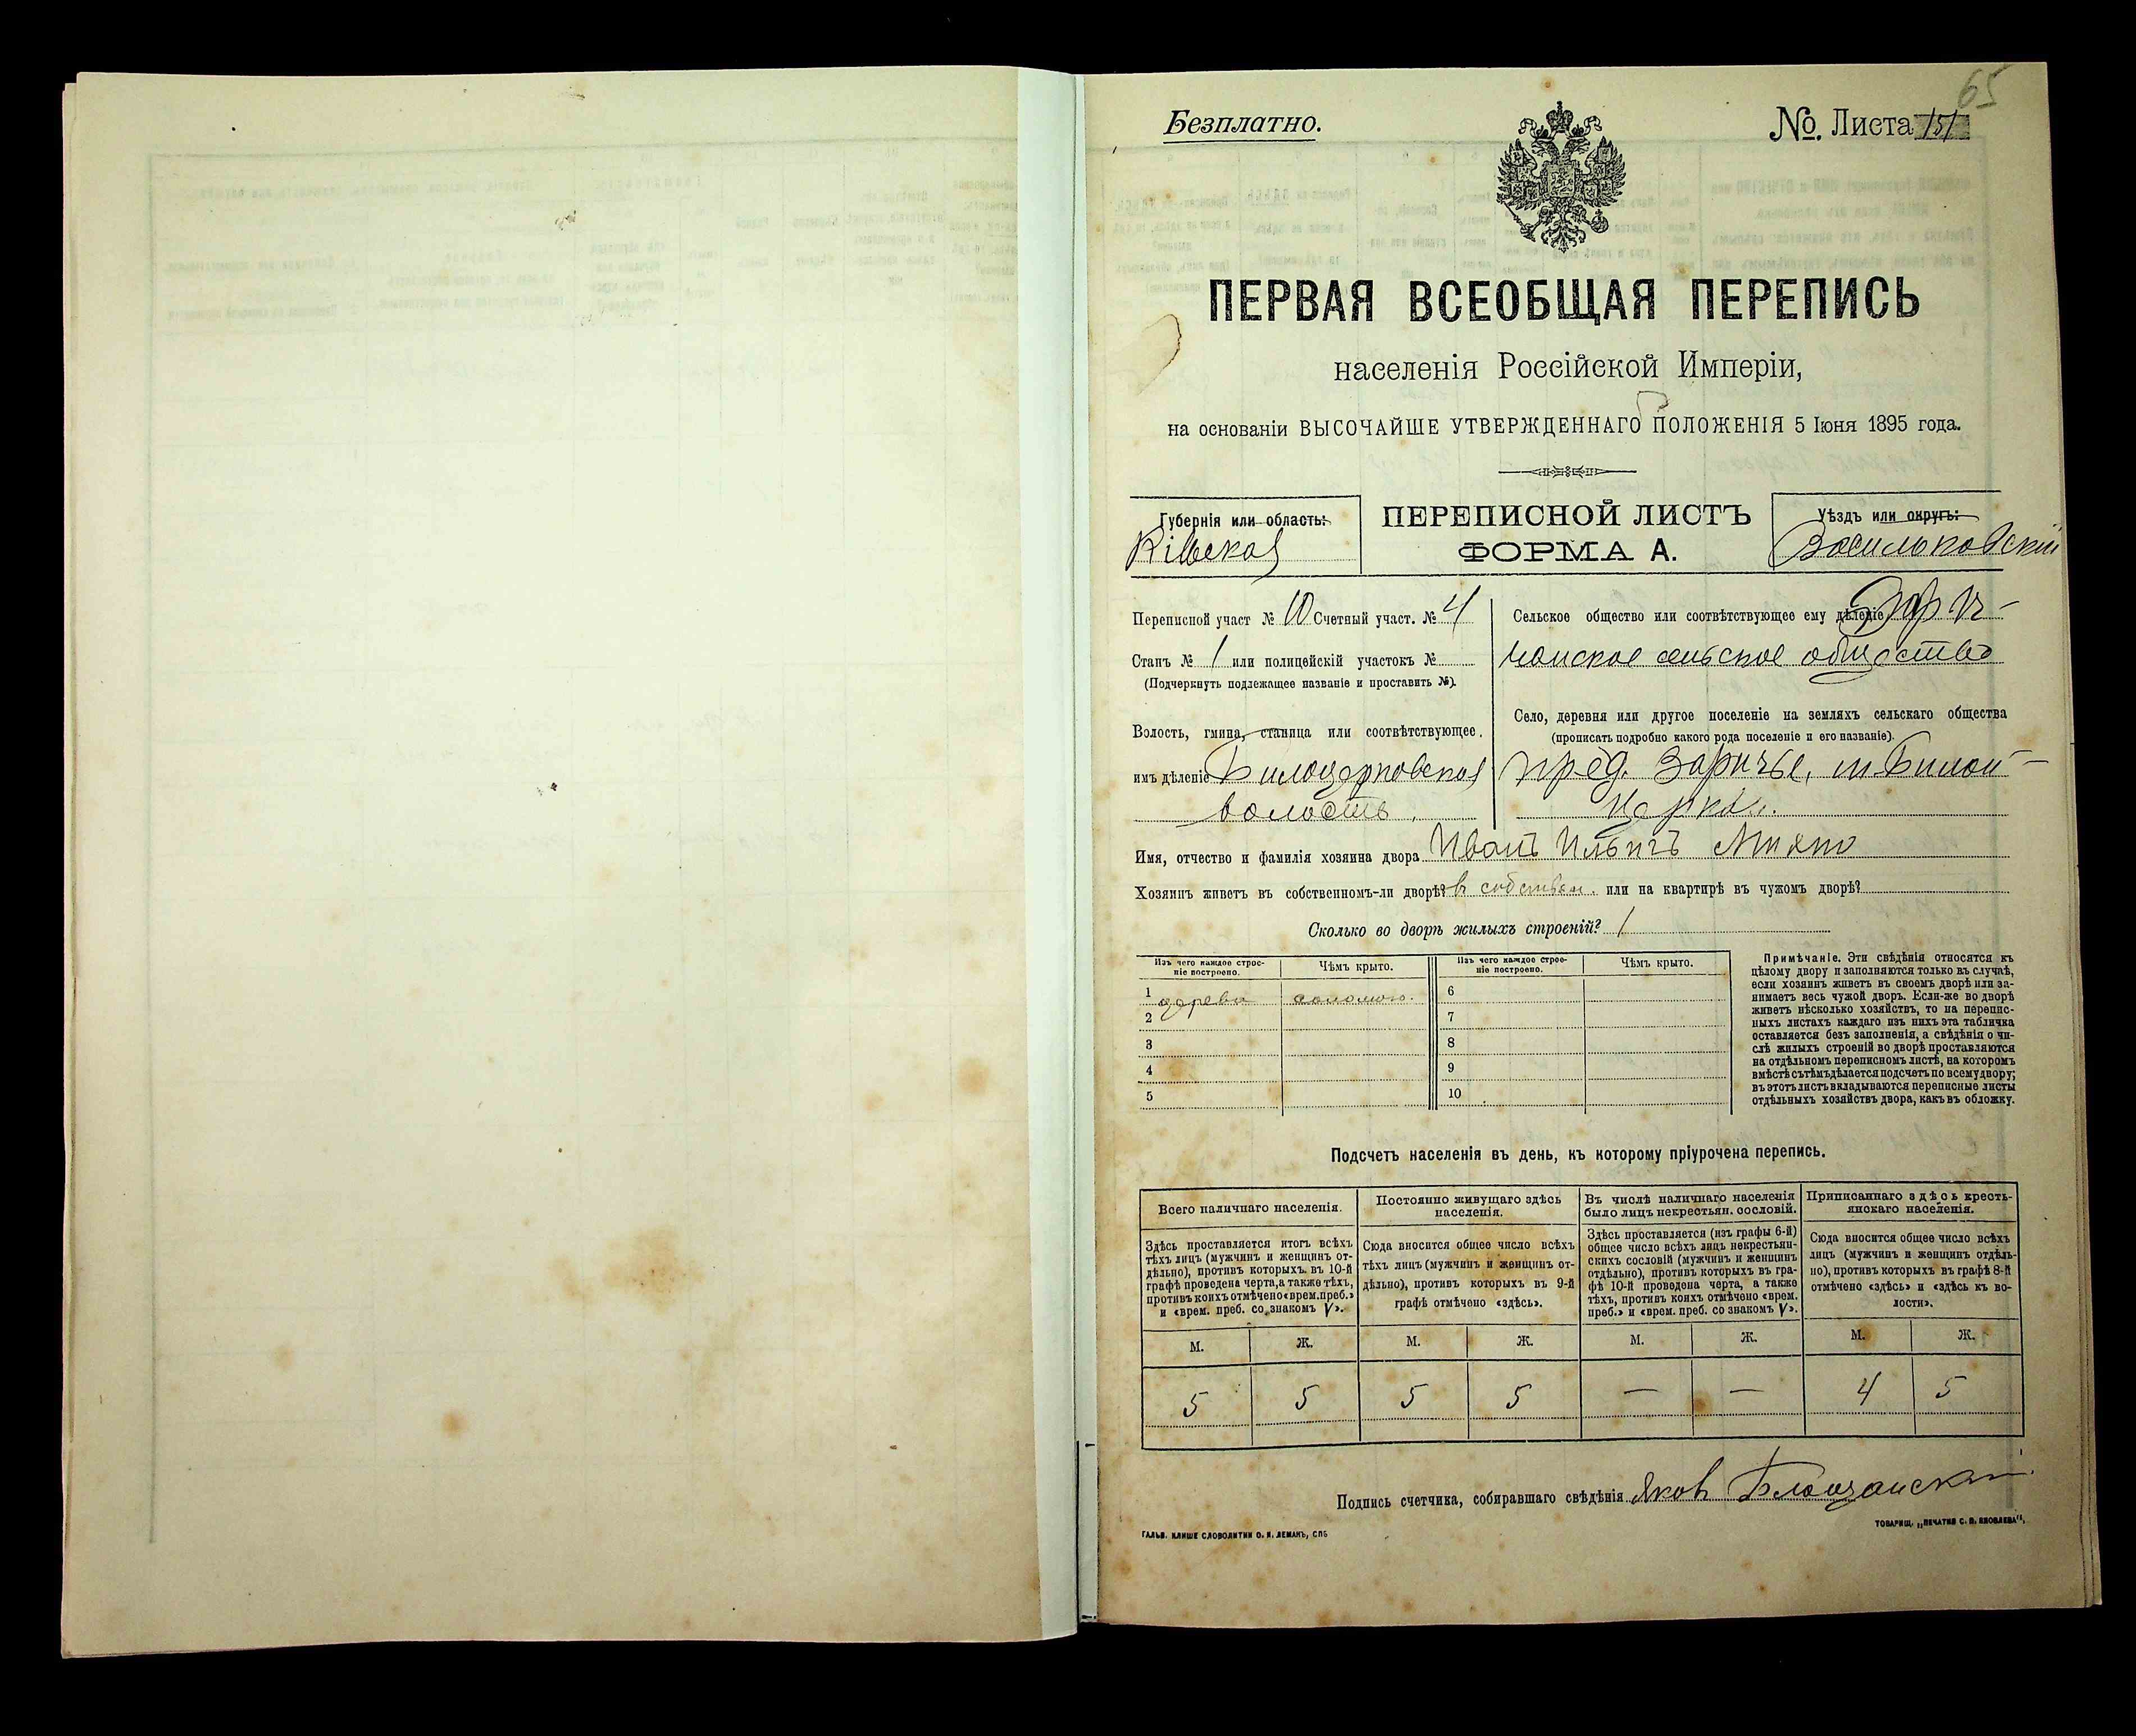 65
Безплатно.
№. Листа 151
ПЕРВАЯ ВСЕОБЩАЯ ПЕРЕПИСЬ
населенія Россійской Имперіи,
на основаніи ВЫСОЧАЙШЕ УТВЕРЖДЕННАГО ПОЛОЖЕНІЯ 5 Іюня 1895 года.
Губернія или область:
Кіевская
ПЕРЕПИСНОЙ ЛИСТЪ
ФОРМА А.
Уѣздъ или округъ:
Васильковскій
Переписной участ № 10 Счетный участ. № 4
Станъ № 1 или полицейскій участокъ №
(Подчеркнуть подлежащее названіе и проставить №).
Волость, гмина, станица или соотвѣтствующее
имъ дѣленіе Билоцерковская
волость.
Сельское общество или соотвѣтствующее ему дѣленіе Зари-
чанское сельское общество
Село, деревня или другое поселеніе на земляхъ сельскаго общества
(прописать подробно какого рода поселеніе и его названіе).
пред. Заричье, м. Билой
Церкви.
Имя, отчество и фамилія хозяина двора Иванъ Ильичъ
Хозяинъ живетъ въ собственномъ-ли дворѣ? в собствен. или на квартирѣ въ чужомъ дворѣ?
Сколько во дворѣ жилыхъ строеній? 1
Изъ чего каждое строе-
ніе построено.
Чѣмъ крыто.
Изъ чего каждое строе-
ніе построено.
Чѣмъ крыто.
1 дерева соломою.
2
3
4
5
6
7
8
9
10
Примѣчаніе. Эти свѣдѣнія относятся къ
цѣлому двору и заполняются только въ случаѣ,
если хозяинъ живетъ въ своемъ дворѣ или за-
нимаетъ весь чужой дворъ. Если-же во дворѣ
живетъ нѣсколько хозяйствъ, то на перепис-
ныхъ листахъ каждаго изъ нихъ эта табличка
оставляется безъ заполненія, а свѣдѣнія о чи-
слѣ жилыхъ строеній во дворѣ проставляются
на отдѣльномъ переписномъ листѣ, на которомъ
вмѣстѣ съ тѣмъ дѣлается подсчетъ по всему двору;
въ этотъ листъ вкладываются переписные листы
отдѣльныхъ хозяйствъ двора, какъ въ обложку.
Подсчетъ населенія въ день, къ которому пріурочена перепись.
Всего наличнаго населенія.
Постоянно живущаго здѣсь
населенія.
Въ числѣ наличнаго населенія
было лицъ некрестьян. сословій.
Приписаннаго здѣсь кресть-
янскаго населенія.
Здѣсь проставляется итогъ всѣхъ
тѣхъ лицъ (мужчинъ и женщинъ от-
дѣльно), противъ которыхъ въ 10-й
графѣ проведена черта, а также тѣхъ,
противъ коихъ отмѣчено «врем. преб.»
и «врем. преб. со знакомъ V».
Сюда вносится общее число всѣхъ
тѣхъ лицъ (мужчинъ и женщинъ от-
дѣльно), противъ которыхъ въ 9-й
графѣ отмѣчено «здѣсь».
Здѣсь проставляется (изъ графы 6-й)
общее число всѣхъ лицъ некрестьян-
скихъ сословій (мужчинъ и женщинъ
отдѣльно), противъ которыхъ въ гра-
фѣ 10-й проведена черта, а также
тѣхъ, противъ коихъ отмѣчено «врем.
преб.» и «врем. преб. со знакомъ V».
Сюда вносится общее число всѣхъ
лицъ (мужчинъ и женщинъ отдѣль-
но), противъ которыхъ въ графѣ 8-й
отмѣчено «здѣсь» и «здѣсь къ во-
лости».
М. Ж. М. Ж. М. Ж. М. Ж.
5 5 5 5 — — 4 5
Подпись счетчика, собиравшаго свѣдѣнія Яков
ГАЛЬВ. КЛИШЕ СЛОВОЛИТНИ О. И. ЛЕМАНЪ, СПБ
ТОВАРИЩ. „ПЕЧАТНЯ С. П. ЯКОВЛЕВА“.